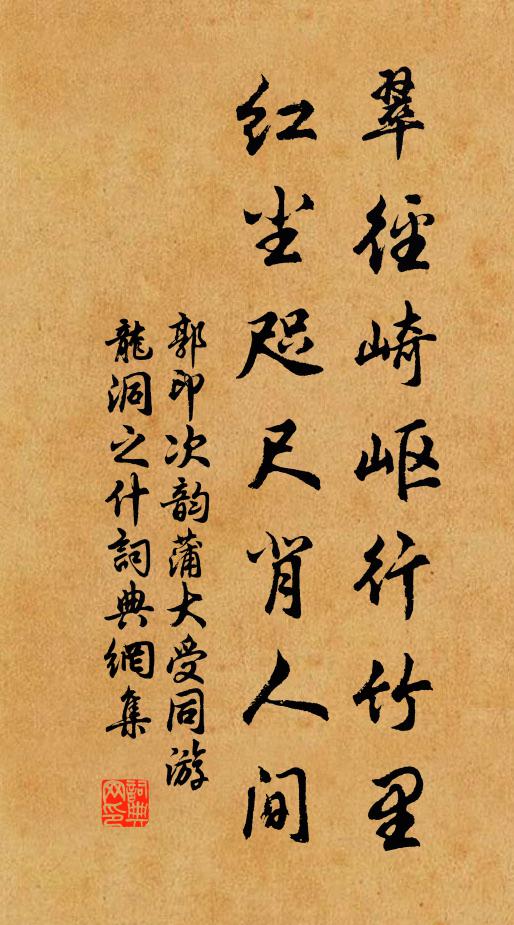 翠径崎岖行竹里
红尘咫尺背人间
郭印次韵蒲大受同游
龍洞之什詞典網集
詞典网印